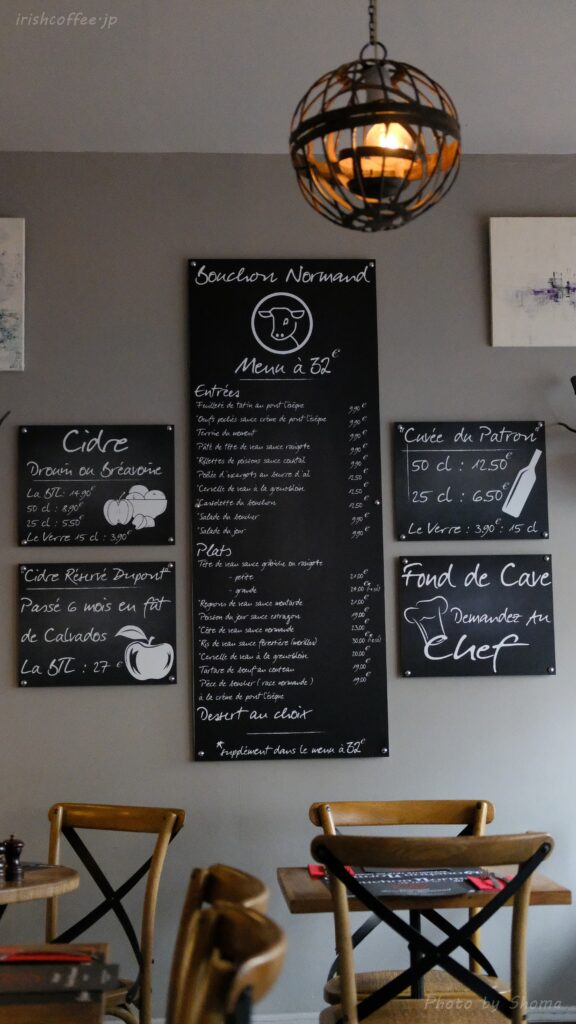 irishcoffee.jp
Bouchon Normand
Menu à 32€
Entrées
Feuilleté de tatin au pont l'évêque 9,90€
Oeufs pochés sauce crème de pont l'évêque 9,90€
Terrine du moment 9,90€
Pâté de tête de veau sauce ravigote 9,90€
Rillettes de poissons sauce cocktail 9,90€
Poêlée d'escargots au beurre d'ail 12,50
Cervelle de veau à la grenobloise 12,50
Cassolette du bouchon 12,50
Salade du boucher 9,90
Salade du jour 9,90
Plats
Tête de veau sauce gribiche ou ravigote
- petite 21,00€
- grande 29,00€
Rognons de veau sauce moutarde 21,00€
Poisson du jour sauce estragon 19,00€
Côte de veau sauce normande 23,00€
Ris de veau sauce forestière (morilles) 30,00€
Cervelle de veau à la grenobloise 20,00€
Tartare de boeuf au couteau 19,00€
Pièce de boucher (race normande) 19,00€
à la crème de pont l'évêque
Dessert au choix
*supplément dans le menu à 32€
Cidre
Drouin ou Bréavoine
La BTL : 14,90€
50 cl : 8,90€
25 cl : 5,50€
Le Verre 15 cl : 3,90€
"Cidre Réservé Dupont"
Passé 6 mois en fût
de Calvados
La BTL : 27 €
"Cuvée du Patron"
50 cl : 12,50€
25 cl : 6,50€
Le Verre : 3,90€ : 15 cl
Fond de Cave
Demandez Au
Chef
Photo by Shoma